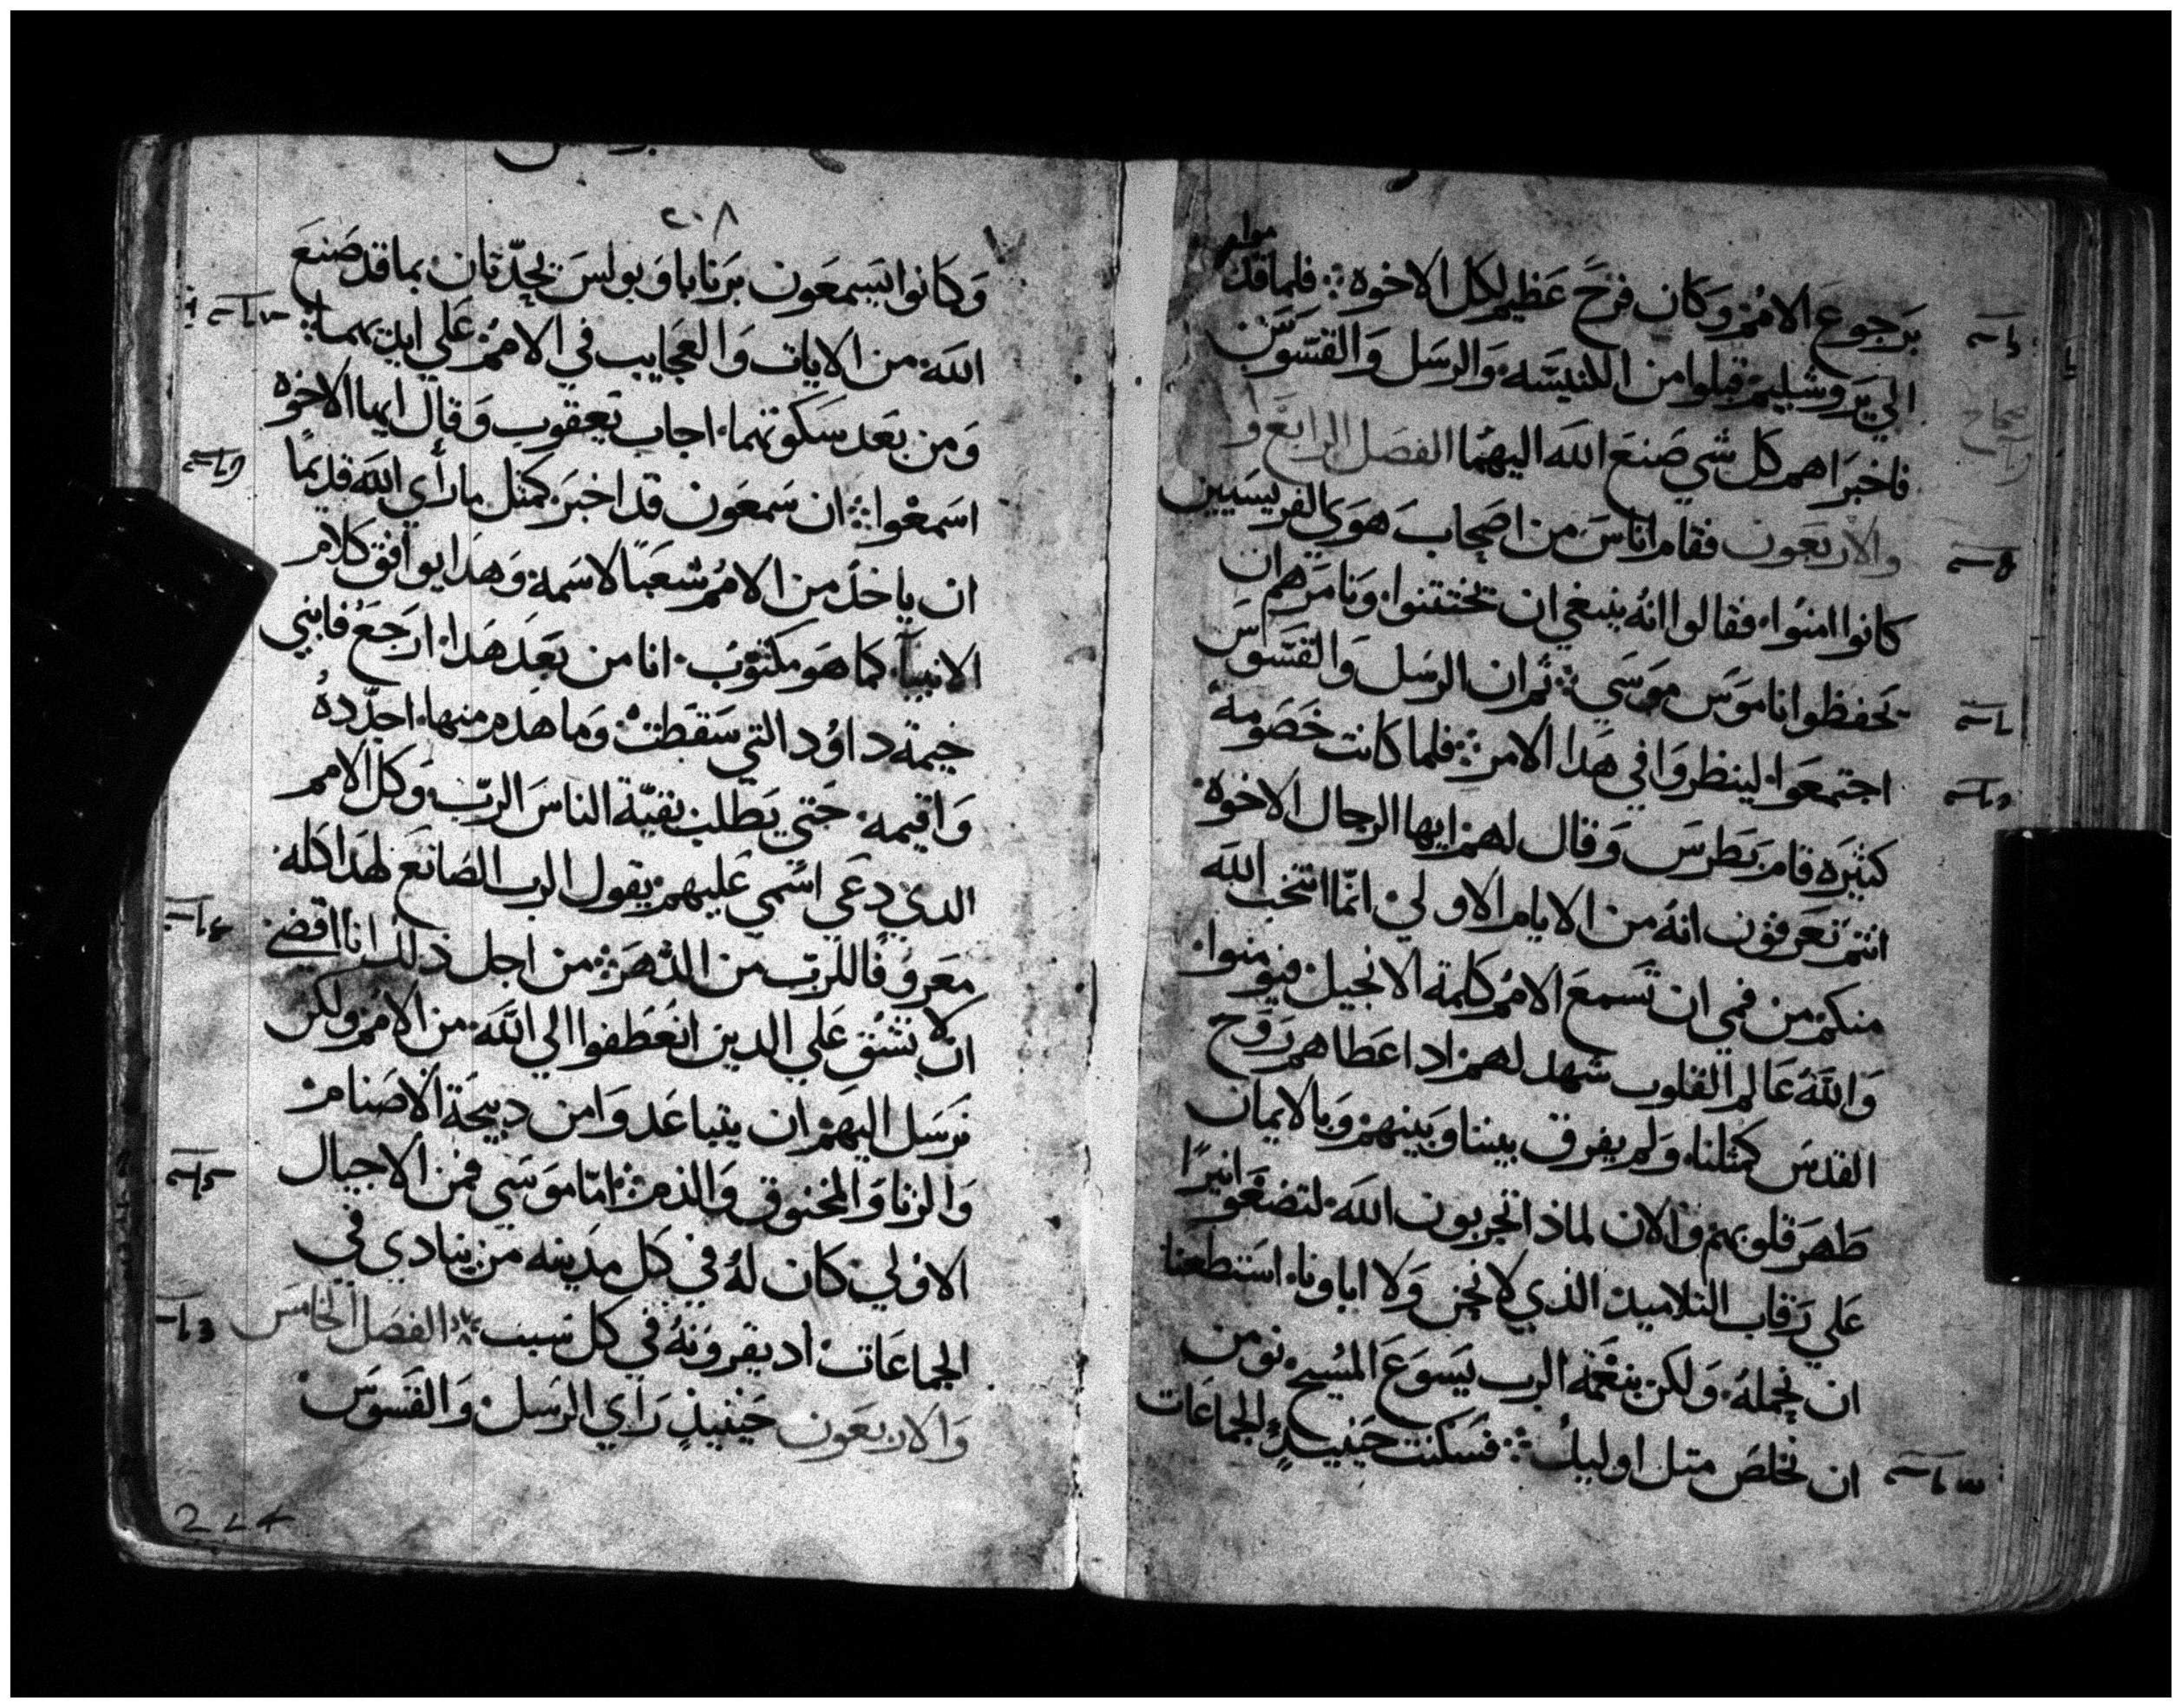 برجوع الامم وكان فرح عظيم لكل الاخوه ⁘ فلما قدموا
الي يروشليم قبلوا من الكنيسه والرسل والقسوس
فاخبراهم كل شي صنع الله اليهما الفصل الرابع و
والاربعون فقام اناس من اصحاب هوي الفريسيين
كانوا امنوا فقالوا انه ينبغي ان تختتنوا ونامرهم ان
يحفظوا ناموس موسي ⁘ ثم ان الرسل والقسوس
اجتمعوا لينظروا في هدا الامر ⁘ فلما كانت خصومه
كثيره قام بطرس وقال لهم ايها الرجال الاخوه
انتم تعرفون انه من الايام الاولي انما انتخب الله
منكم من فمي ان تسمع الامم كلمة الانجيل فيومنوا
والله عالم القلوب شهد لهم اد اعطاهم روح
القدس كمثلنا ولم يفرق بيننا وبينهم وبالايمان
طهر قلوبهم والان لماذا تجربون الله لتضعوا نيرًا
علي رقاب التلاميد الذي لا نحن ولا اباونا استطعنا
ان نحمله ولكن بنعمة الرب يسوع المسيح نومن
ان نخلص متل اوليك ⁘ فسكتت حينيدٍ الجماعات
٢٠٨
وكانوا يسمعون برنابا وبولس يحدّثان بما قد صنع
الله من الايات والعجايب في الامم علي ايديهما ⁘
ومن بعد سكوتهما اجاب يعقوب وقال ايها الاخوه
اسمعوا ⁘ ان سمعون قد اخبر كمثل ما رأي الله قديمًا
ان ياخد من الامم شعبًا لاسمه وهدا يوافق كلام
الانبيآ كما هو مكتوب انا من بعد هدا ارجع فابني
خيمة داوُد التي سقطت وما هدم منها اجدّده
واقيمه حتي يطلب بقيّة الناس الربّ وكل الامم
الدي دعي اسمي عليهم يقول الرب الصانع لهدا كله
معروفًا للربّ من الدهر ⁘ من اجل ذلك انا اقضي
ان لا نشق علي الدين انعطفوا الي الله من الامم ولكن
نرسل اليهم ان يتباعدوا من دبيحة الاصنام
والزنا والمخنوق والدم ⁘ امّا موسي فمن الاجيال
الاولي كان له في كل مدينه من ينادي في
الجماعات اد يقرونه في كل سبت الفصل الخامس
والاربعون حينيذٍ راي الرسل والقسوس